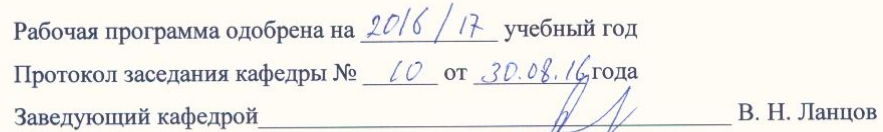 Рабочая программа одобрена на 2016/17 учебный год
Протокол заседания кафедры № 10 от 30.08.16 года
Заведующий кафедрой В. Н. Ланцов